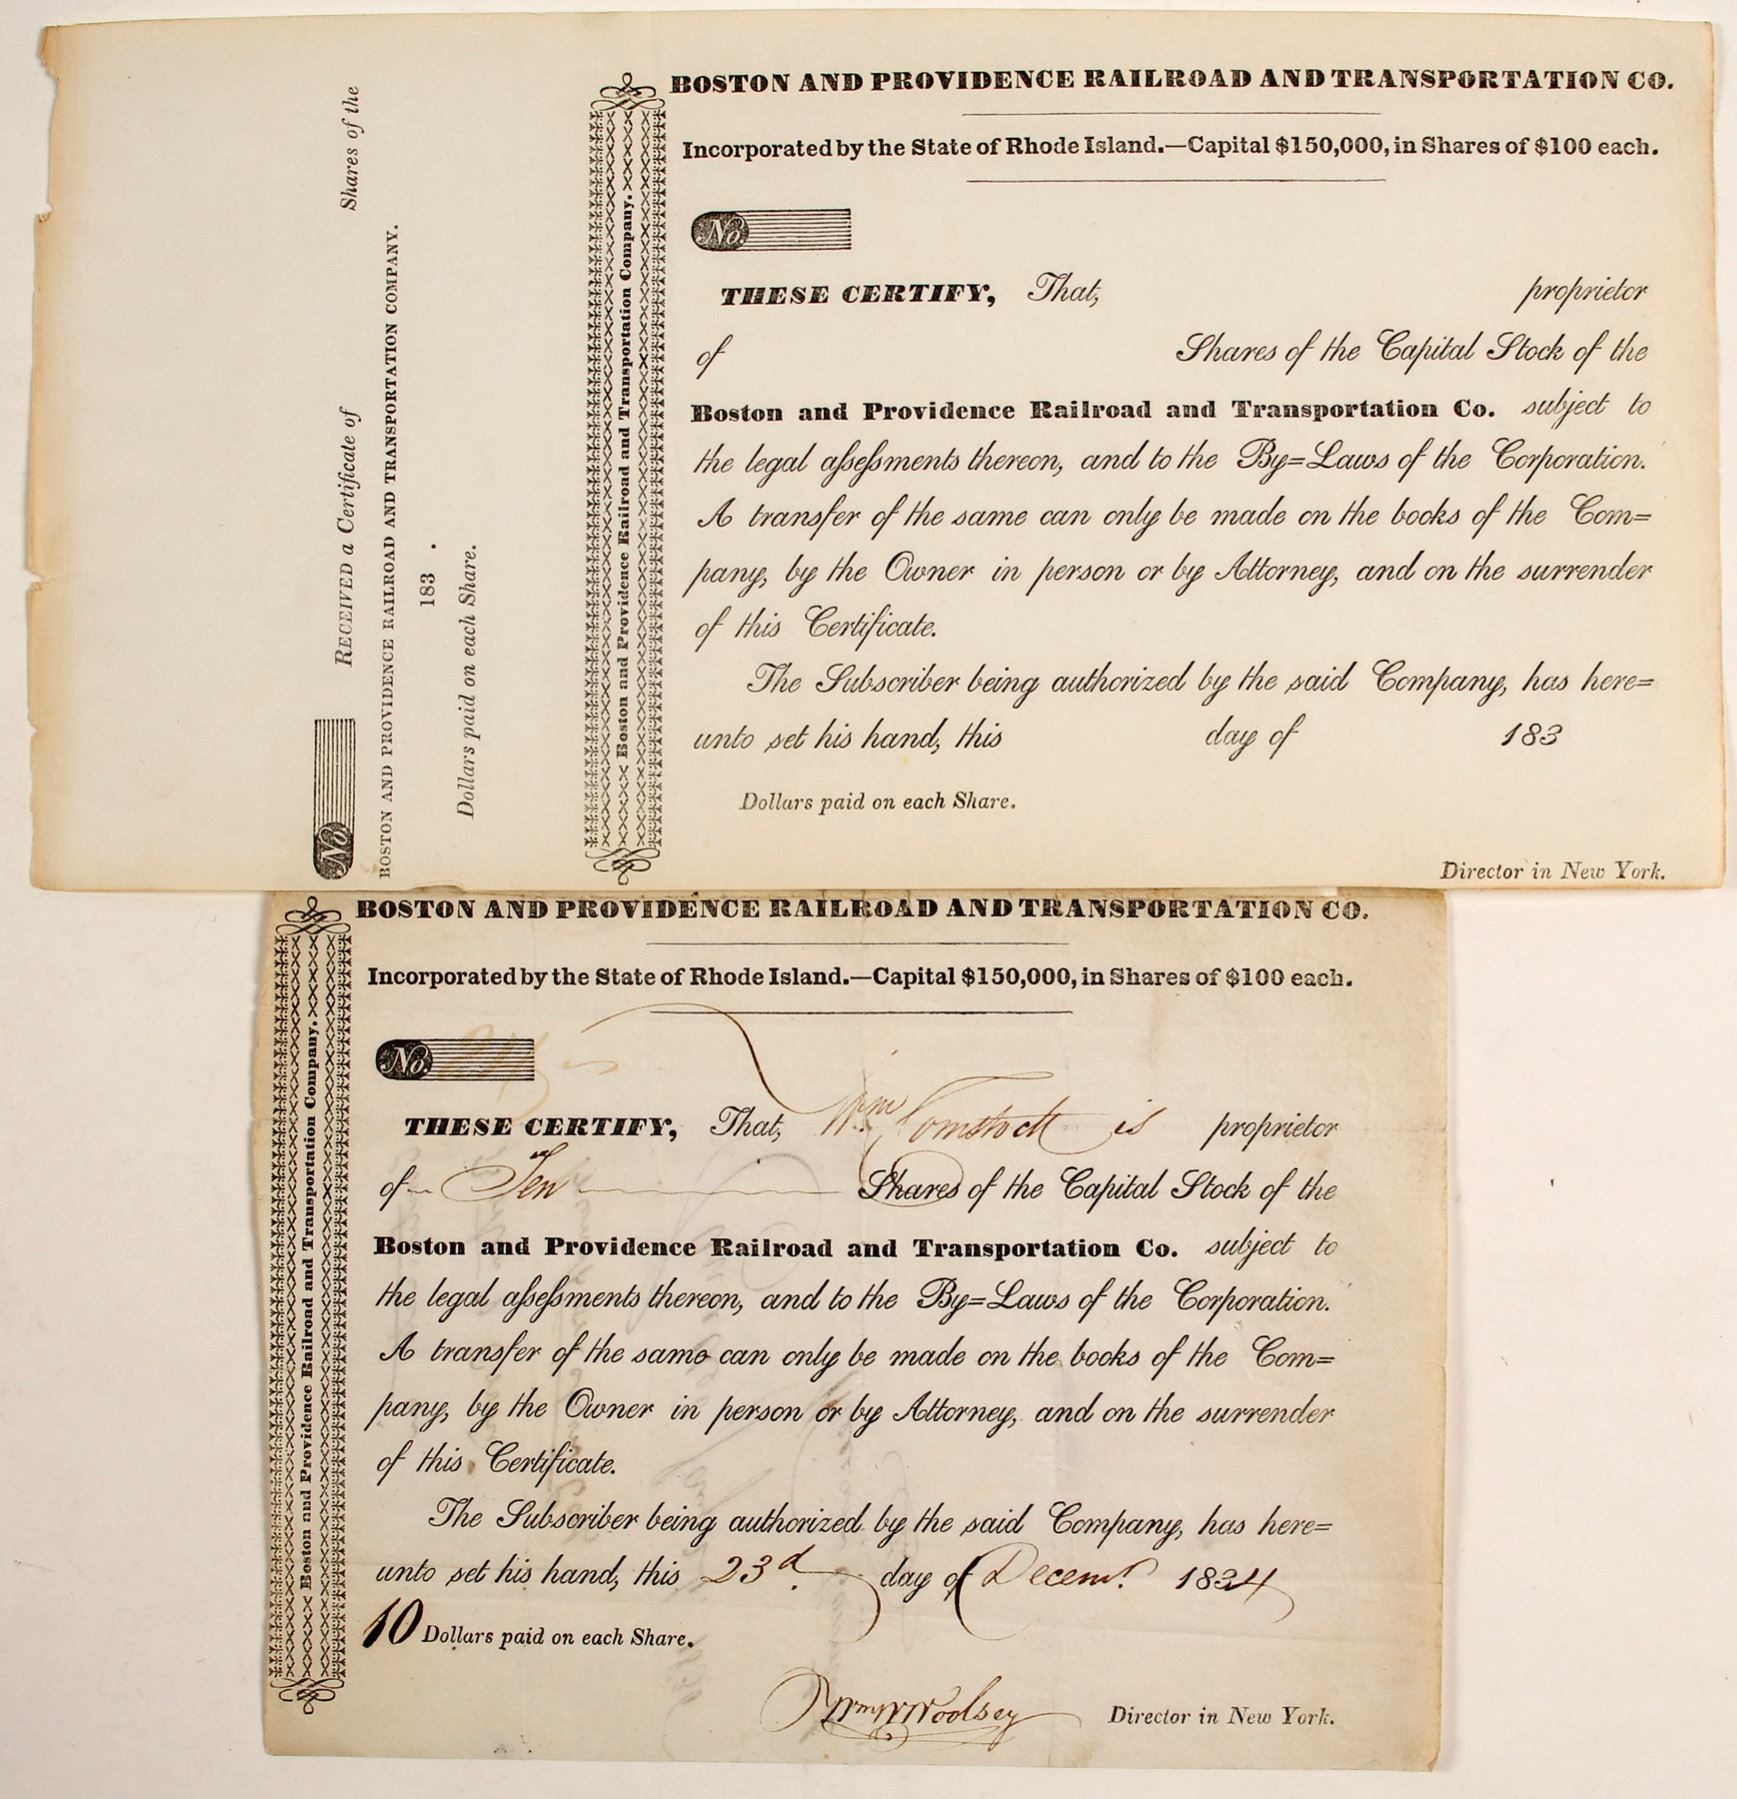 No.
RECEIVED a Certificate of Shares of the
BOSTON AND PROVIDENCE RAILROAD AND TRANSPORTATION COMPANY.
183 .
Dollars paid on each Share.
Boston and Providence Railroad and Transportation Company.
BOSTON AND PROVIDENCE RAILROAD AND TRANSPORTATION CO.
Incorporated by the State of Rhode Island.—Capital $150,000, in Shares of $100 each.
No.
THESE CERTIFY, That, proprietor
of Shares of the Capital Stock of the
Boston and Providence Railroad and Transportation Co. subject to
the legal aſseſsments thereon, and to the By=Laws of the Corporation.
A transfer of the same can only be made on the books of the Com=
pany, by the Owner in person or by Attorney, and on the surrender
of this Certificate.
The Subscriber being authorized by the said Company, has here=
unto set his hand, this day of 183
Dollars paid on each Share.
Director in New York.
Boston and Providence Railroad and Transportation Company.
BOSTON AND PROVIDENCE RAILROAD AND TRANSPORTATION CO.
Incorporated by the State of Rhode Island.—Capital $150,000, in Shares of $100 each.
No.
THESE CERTIFY, That, Wm Comstock is proprietor
of Ten Shares of the Capital Stock of the
Boston and Providence Railroad and Transportation Co. subject to
the legal aſseſsments thereon, and to the By=Laws of the Corporation.
A transfer of the same can only be made on the books of the Com=
pany, by the Owner in person or by Attorney, and on the surrender
of this Certificate.
The Subscriber being authorized by the said Company, has here=
unto set his hand, this 23d day of Decemr. 1834
10 Dollars paid on each Share.
Wm W Woolsey Director in New York.